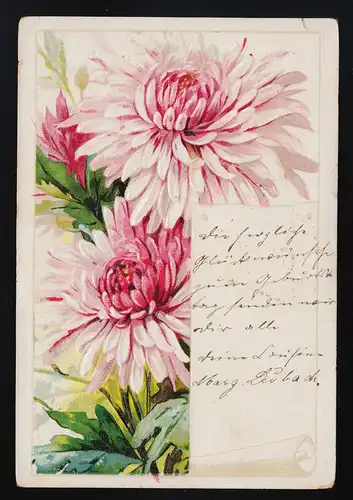 Die herzliche
Glückwünsche
zum Geburts
tag senden wir
dir alle
deine Cousine
Marg.